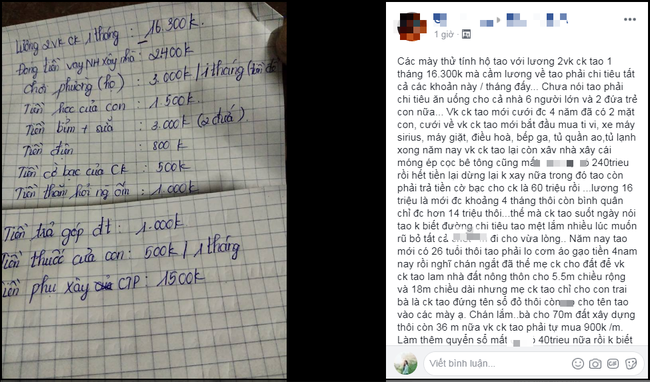 Lương 2vk ck 1 tháng : 16.300k.
Đóng tiền vay NH xây nhà : 2400k
Chơi phường (họ) : 3.000k / 1 tháng
Tiền học của con : 1.500k.
Tiền bỉm + sữa : 3.000k (2 đứa)
Tiền điện : 800k
Tiền cờ bạc của ck : 500k
Tiền thăm hỏi ng ốm : 1.000k
Tiền trả góp đt : 1.000k
Tiền thuốc của con : 500k / 1 tháng
Tiền phụ xây CTP : 1500k
1 giờ ·
Các mày thử tính hộ tao với lương 2vk ck tao 1
tháng 16.300k mà cầm lương về tao phải chi tiêu tất
cả các khoản này / tháng đấy... Chưa nói tao phải
chi tiêu ăn uống cho cả nhà 6 người lớn và 2 đứa trẻ
con nữa... Vk ck tao mới cưới đc 4 năm đã có 2 mặt
con, cưới về vk ck tao mới bắt đầu mua ti vi, xe máy
sirius, máy giặt, điều hoà, bếp ga, tủ quần ao,tủ lạnh
xong năm nay vk ck tao lại còn xây nhà xây cái
móng ép cọc bê tông cũng mất 240trieu
rồi hết tiền lại dừng lại k xay nữa trong đó tao còn
phải trả tiền cờ bạc cho ck là 60 triệu rồi ...lương 16
triệu là mới đc khoảng 4 tháng thôi còn bình quân
chỉ đc hơn 14 triệu thôi...thế mà ck tao suốt ngày nói
tao k biết đường chi tiêu tao mệt lắm nhiều lúc muốn
rũ bỏ tất cả đi cho vừa lòng.. Năm nay tao
mới có 26 tuổi thôi tao phải lo cơm áo gạo tiền 4nam
nay rồi nghĩ chán ngắt đã thế mẹ ck cho đất để vk
ck tao lam nhà đất nông thôn cho 5.5m chiều rộng
và 18m chiều dài nhưng mẹ ck tao chỉ cho con trai
bà là ck tao đứng tên sổ đỏ thôi còn cho tên tao
vào các mày ạ. Chán lắm. bà cho 70m đất xây dựng
thôi còn 36 m nữa vk ck tao phải tự mua 900k /m.
Làm thêm quyển sổ mất 40trieu nữa rồi k biết
Viết bình luận...